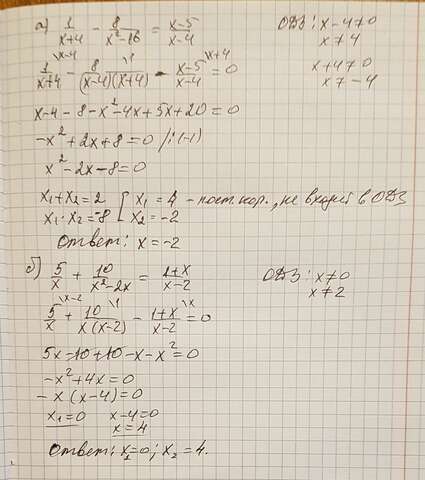 а) 1/(x+4) - 8/(x²-16) = (x-5)/(x-4) ОДЗ: x-4≠0
x≠4
1/(x+4) \x-4 - 8/((x-4)(x+4)) \1 - (x-5)/(x-4) \x+4 = 0 x+4≠0
x≠-4
x-4-8-x²-4x+5x+20=0
-x²+2x+8=0 /:(-1)
x²-2x-8=0
x₁+x₂=2 [ x₁=4 - пост.кор., не входит в ОДЗ
x₁·x₂=-8 x₂=-2
Ответ: x=-2
б) 5/x + 10/(x²-2x) = (1+x)/(x-2) ОДЗ: x≠0
x≠2
5/x \x-2 + 10/(x(x-2)) \1 - (1+x)/(x-2) \x = 0
5x-10+10-x-x²=0
-x²+4x=0
-x(x-4)=0
x₁=0 x-4=0
x=4
Ответ: x₁=0; x₂=4.